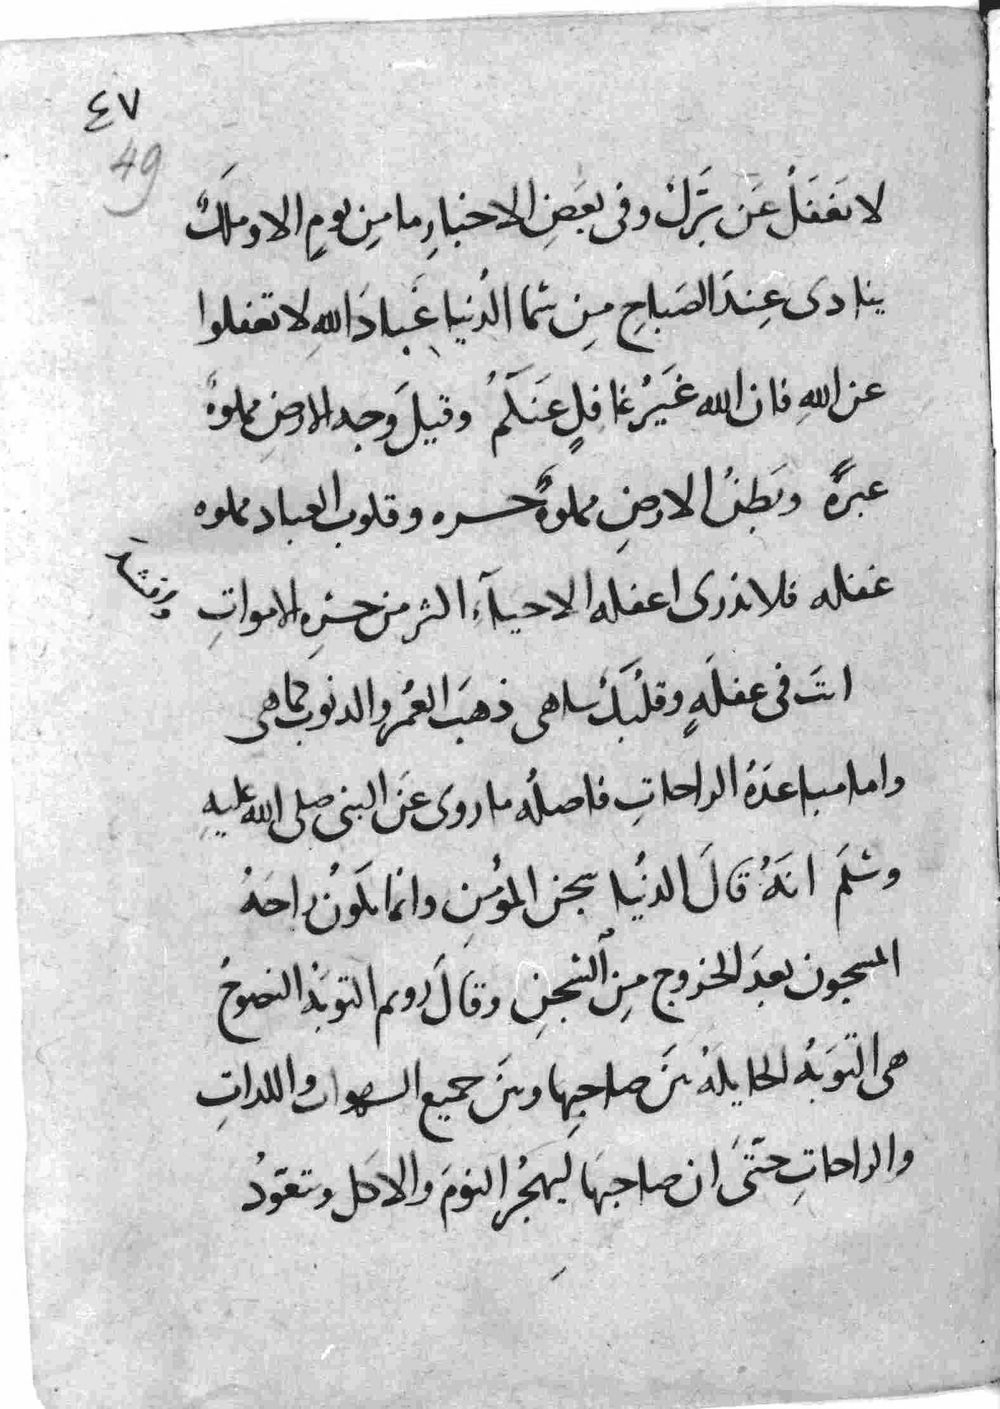 ٤٧
49
لا تغفلْ عَن بِرّك وفى بَعَضِ الاخبارِ ما مِن يومٍ الا وملَكٌ
ينادى عِندَ الصَباحِ مِن سَما الدُنيا عِبادَ اللهِ لا تغفلوا
عن اللهِ فان الله غَيرُ غافلٍ عَنكُم وقيلَ وجه الارضِ مملوةٌ
عبرةً وبَطِنُ الارضِ مملوةٌ حسره وقلوب العباد مملوه
غفله فلا نذرى اغفله الاحيآء اكثر من حسْرهِ الاموات وينشد
انتَ فى غفلَهٍ وقلبُكَ ساهى ذهبَ العُمر والذنوب كماهى
واما مباعدَةُ الراحاتِ فاصلُه ما روى عَن النبى صلى الله عليهِ
وسَلَم انَهُ قالَ الدنُيا سجن المؤُمنِ وانما تكَونُ راحَهُ
المسجون بعدَ الخروج مِن السِجنِ وقالَ رويم التوبَهُ النصوحُ
هى التوَبَهُ الحايلهُ بَينَ صاحبِها وبَينَ جميع الشهوات واللذاتِ
والراحاتِ حتىَ ان صاحبهَا ليَهجُرُ النوَمَ والاكل وتعَودُ